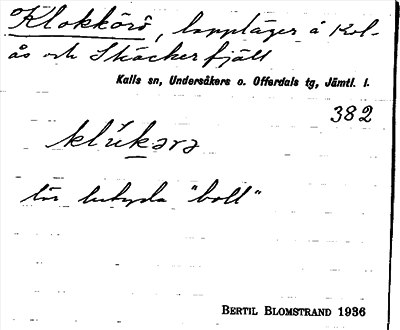 Klokkörå, lappläger å Kol-
ås och Skäckerfjäll
Kalls sn, Undersåkers o. Offerdals tg, Jämtl. l.
382
klúkərə
lär betyda "boll"
BERTIL BLOMSTRAND 1936